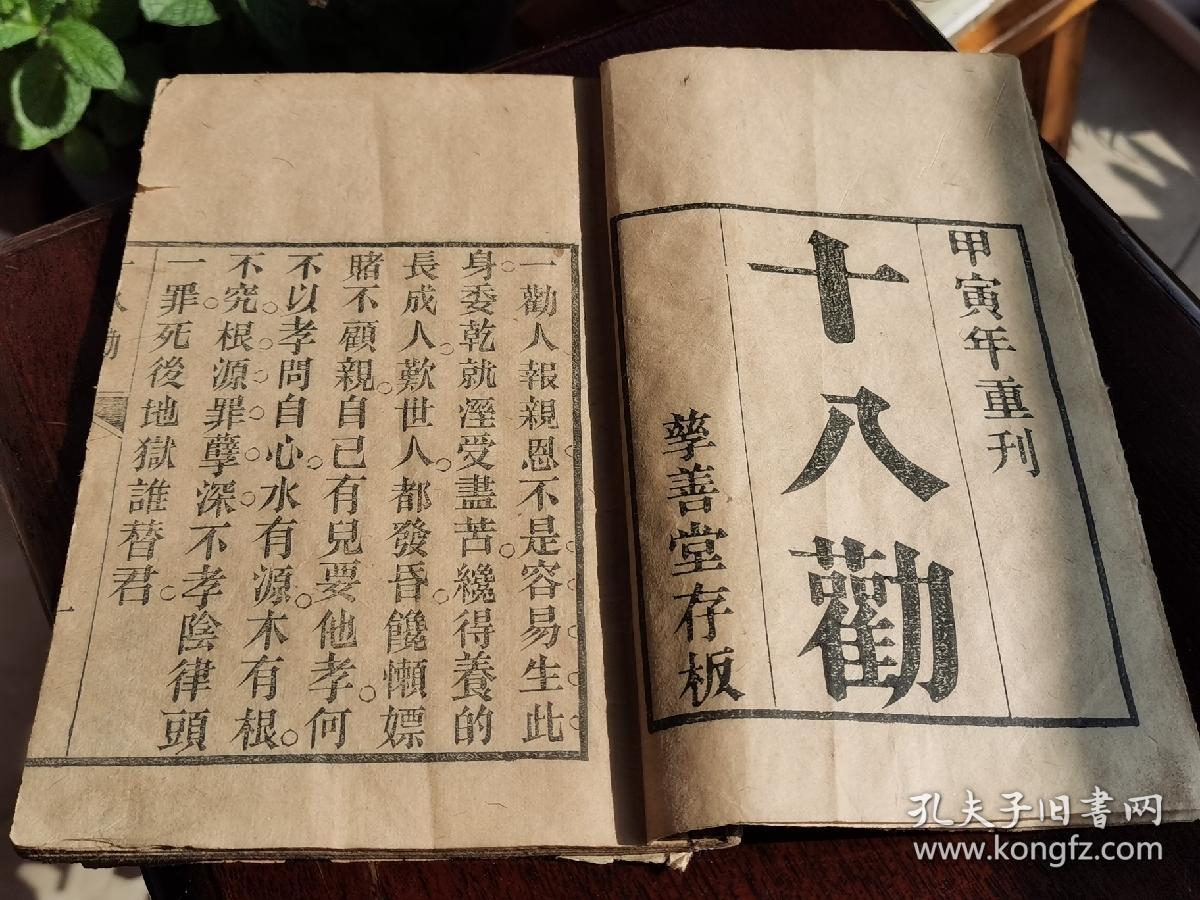 甲寅年重刊
十八勸
孳善堂存板
一勸人報親恩不是容易生此
身委乾就溼受盡苦纔得養的
長成人歎世人都發昏饞懶嫖
賭不顧親自己有兒要他孝何
不以孝問自心水有源木有根
不究根源罪孽深不孝陰律頭
一罪死後地獄誰替君
一
孔夫子旧书网
www.kongfz.com